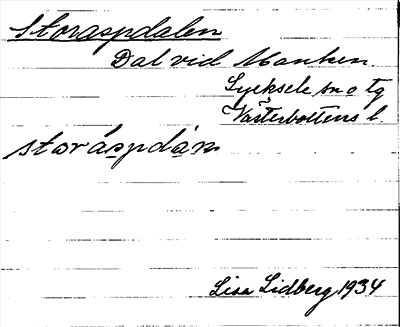 Storaspdalen
Dal vid Manken
Lycksele sn o tg
Västerbottens l.
storáspdán
Lisa Lidberg 1934